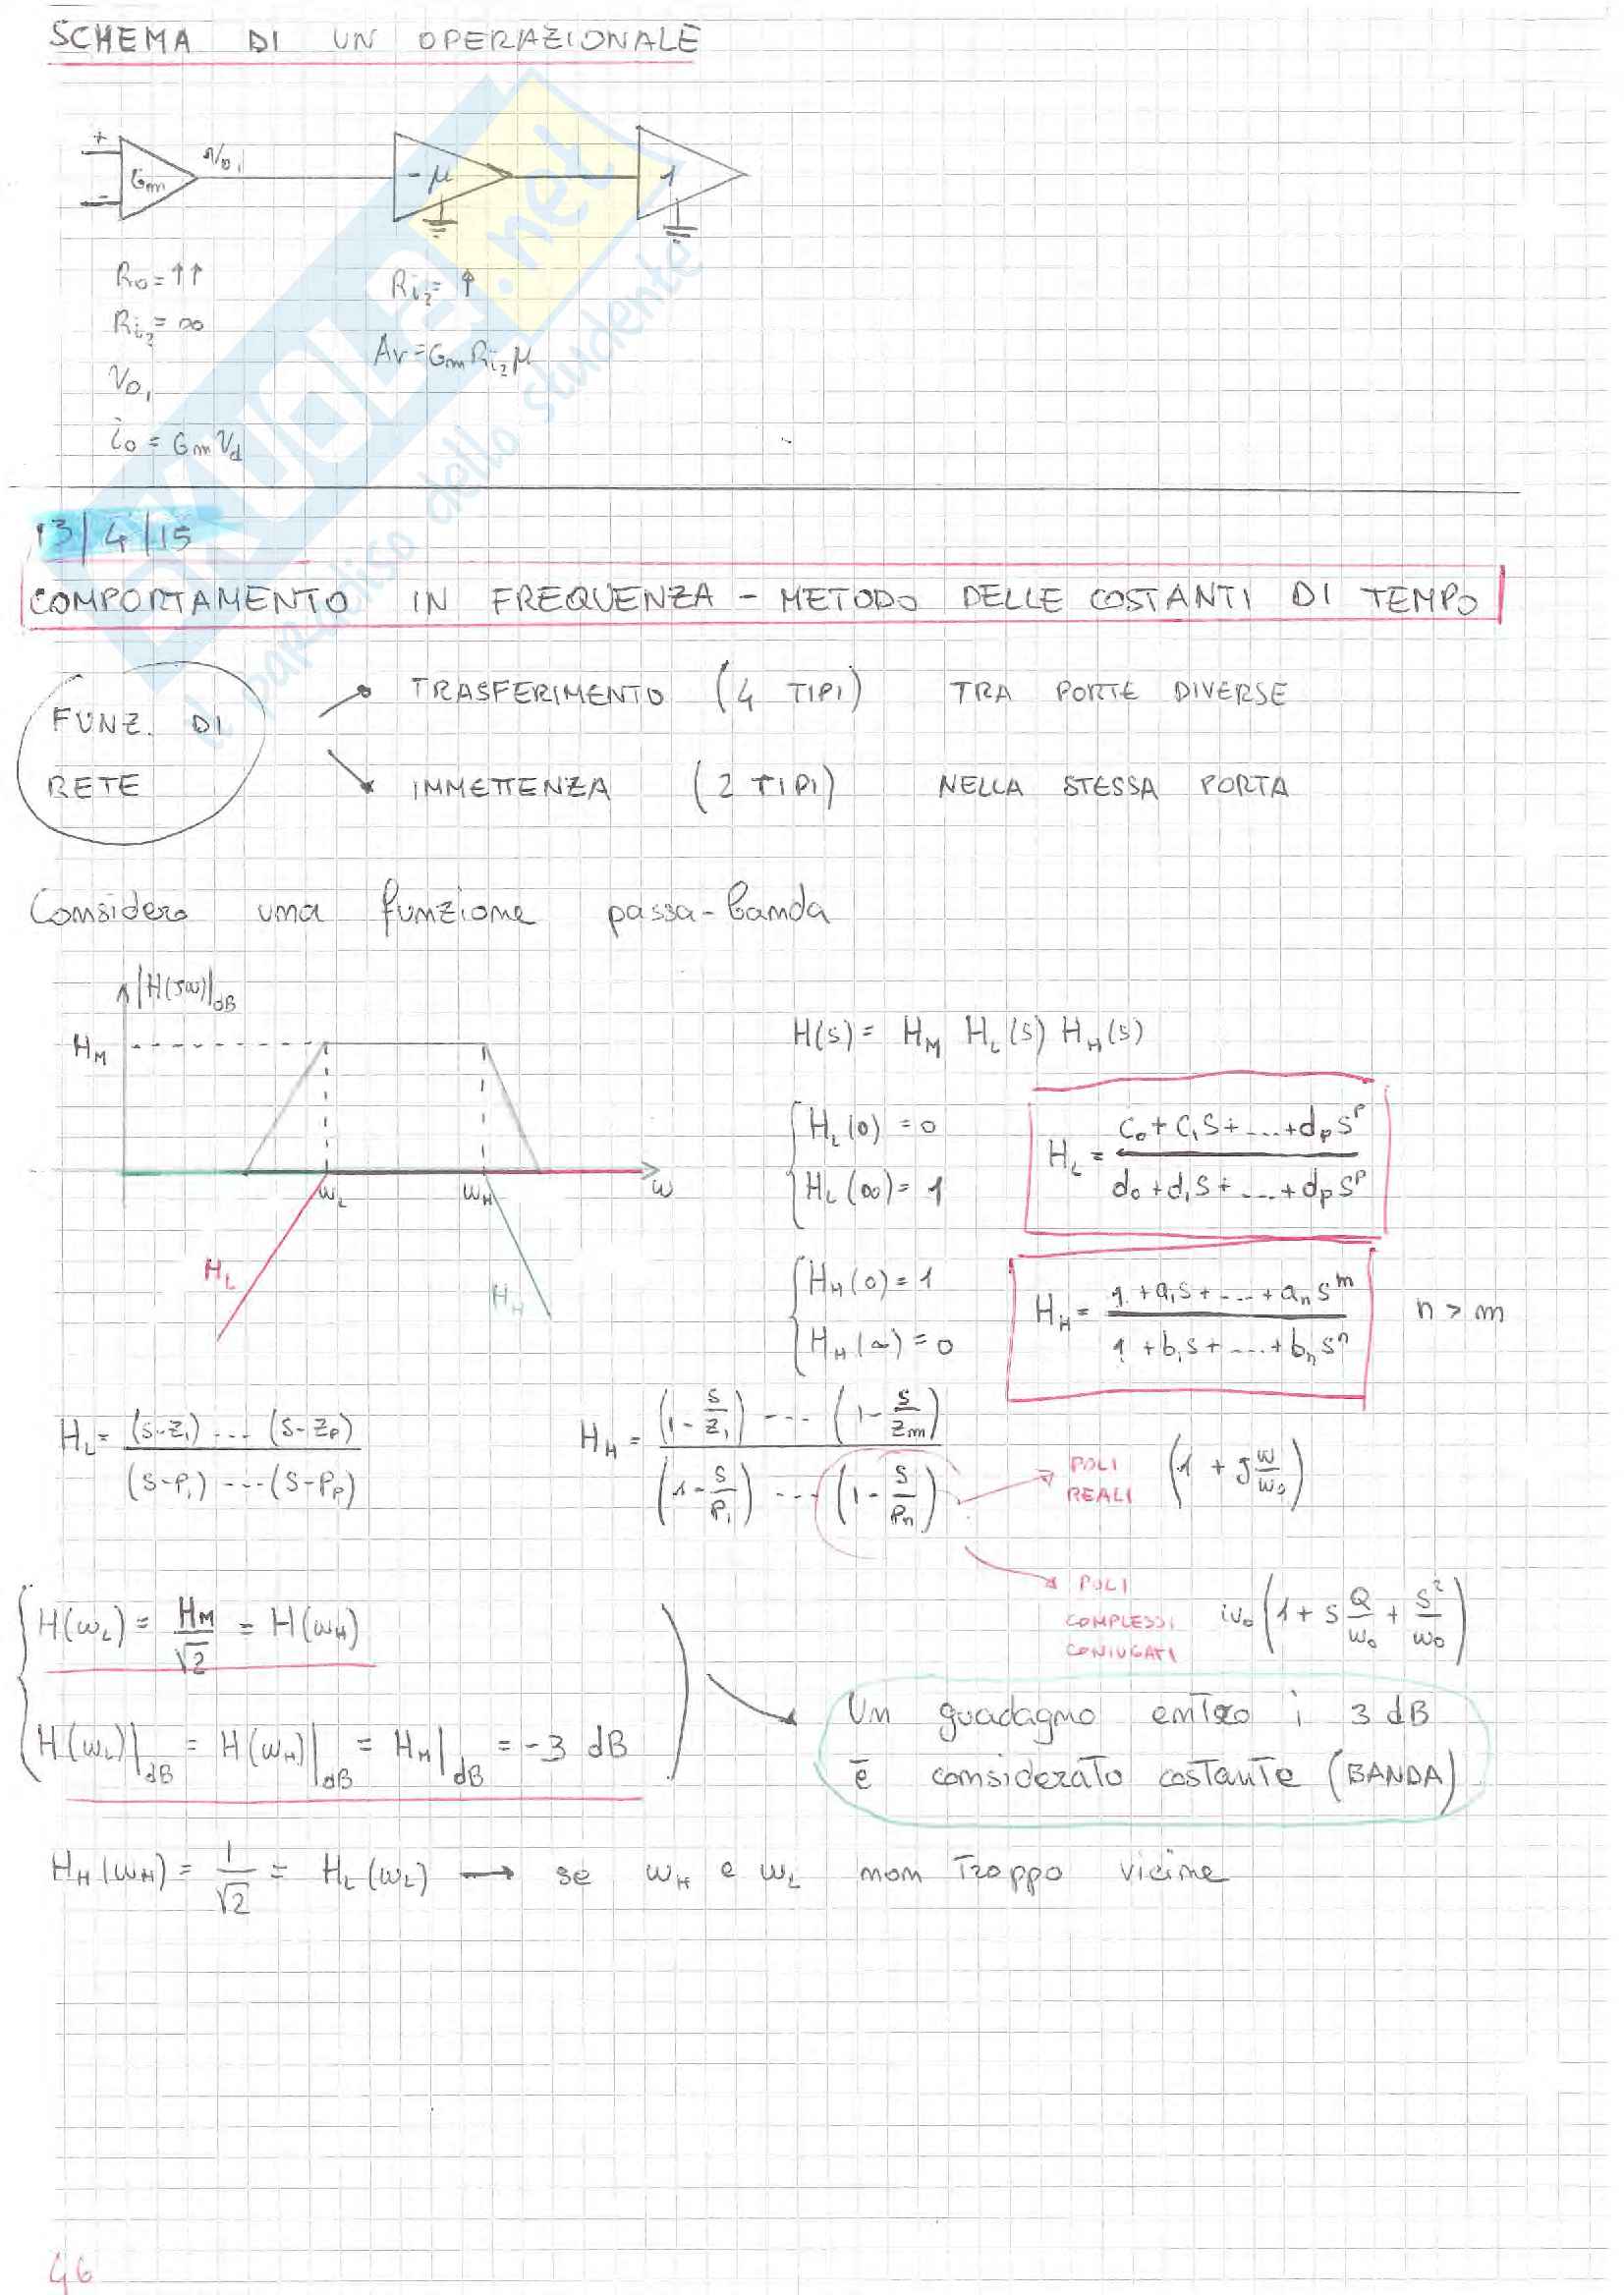 SCHEMA DI UN OPERAZIONALE
+ Gm - vo1 -μ 1
Ro = ↑↑
Ri2 = ∞
Vo1
io = Gm Vd
Ri2 = ↑
Av = Gm Ri2 μ
13/4/15
COMPORTAMENTO IN FREQUENZA - METODO DELLE COSTANTI DI TEMPO
FUNZ. DI
RETE
TRASFERIMENTO (4 TIPI) TRA PORTE DIVERSE
IMMETTENZA (2 TIPI) NELLA STESSA PORTA
Considero una funzione passa-banda
|H(jω)|dB
HM
ωL ωH ω
HL
HH
H(s) = HM HL(s) HH(s)
HL(0) = 0
HL(∞) = 1
HL = (c0 + c1s + ... + dp s^p) / (d0 + d1s + ... + dp s^p)
HH(0) = 1
HH(∞) = 0
HH = (1 + a1s + ... + an s^m) / (1 + b1s + ... + bn s^n) n > m
HL = (s-z1) ... (s-zp) / (s-p1) ... (s-pp)
HH = (1 - s/z1) ... (1 - s/zm) / (1 - s/p1) ... (1 - s/pn)
POLI
REALI
(1 + j ω/ω0)
POLI
COMPLESSI
CONIUGATI
(1 + s Q/ω0 + s²/ω0)
H(ωL) = HM/√2 = H(ωH)
H(ωL)|dB = H(ωH)|dB = HM|dB = -3 dB
Un guadagno entro i 3 dB
è considerato costante (BANDA)
HH(ωH) = 1/√2 = HL(ωL) → se ωH e ωL non troppo vicine
46
SKUOLA.net
il paradiso dello studente